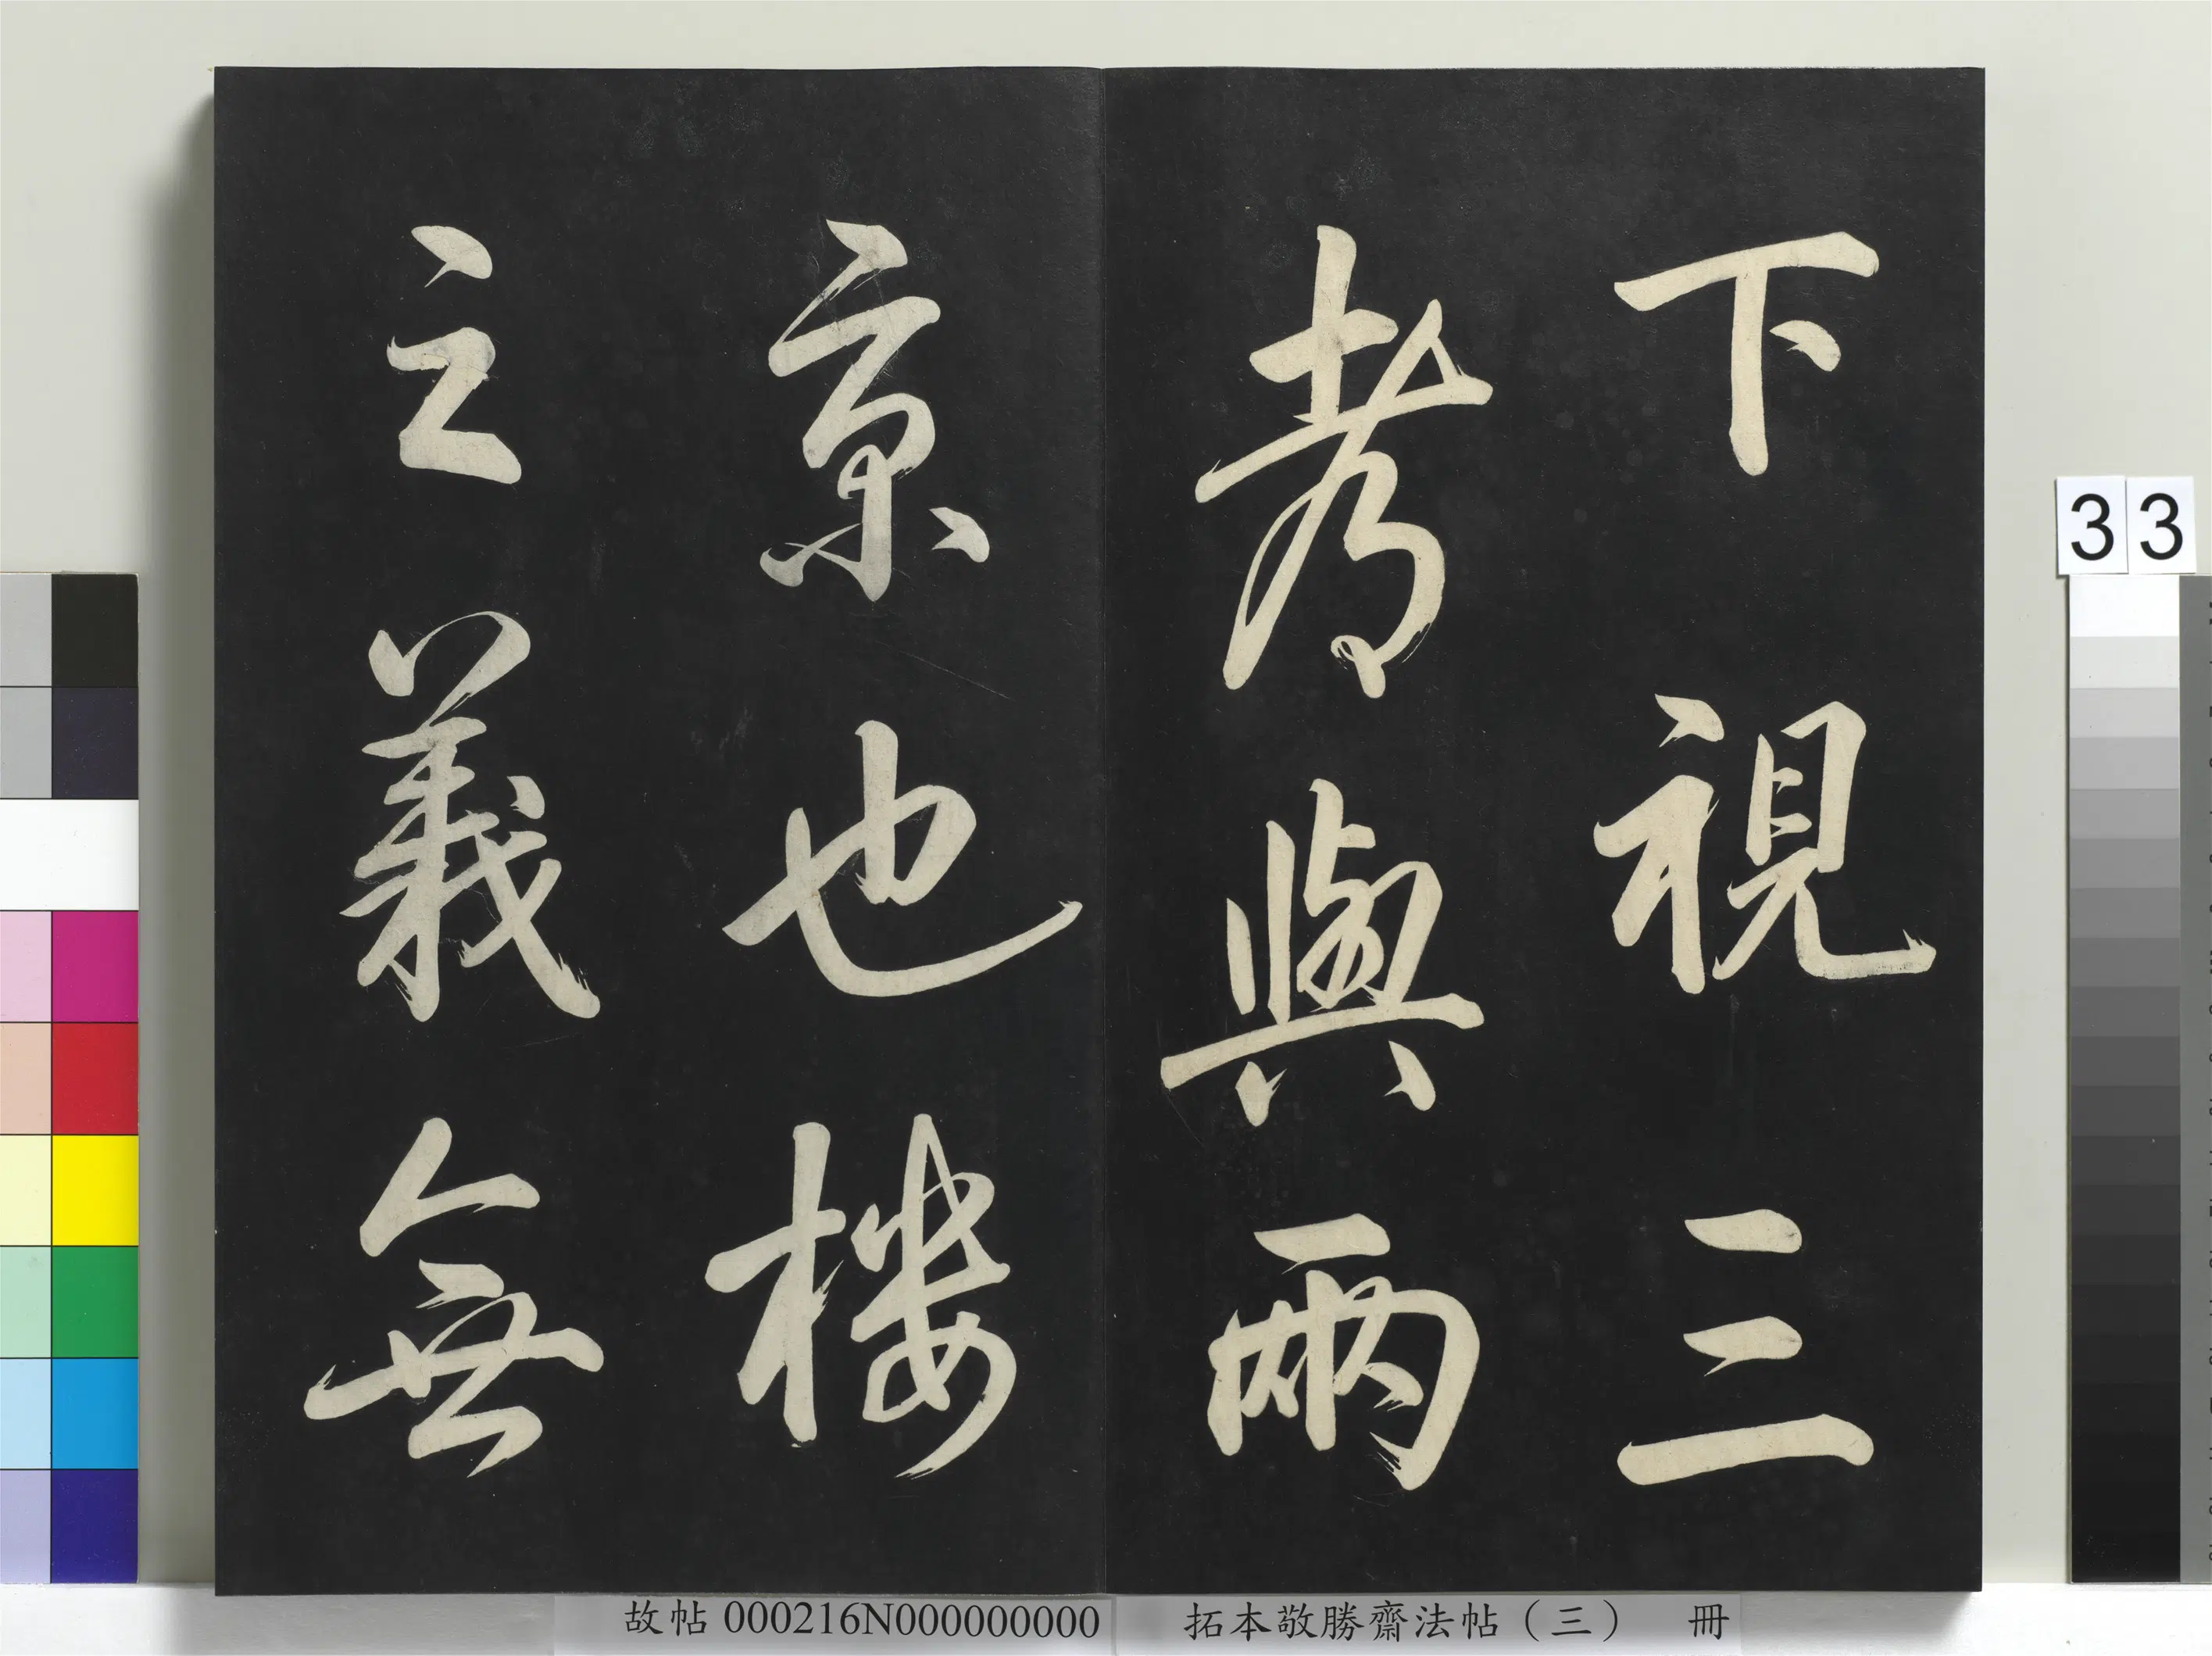 下視三
考與兩
京也樓
之義無
33
故帖000216N000000000
拓本敬勝齋法帖（三） 冊